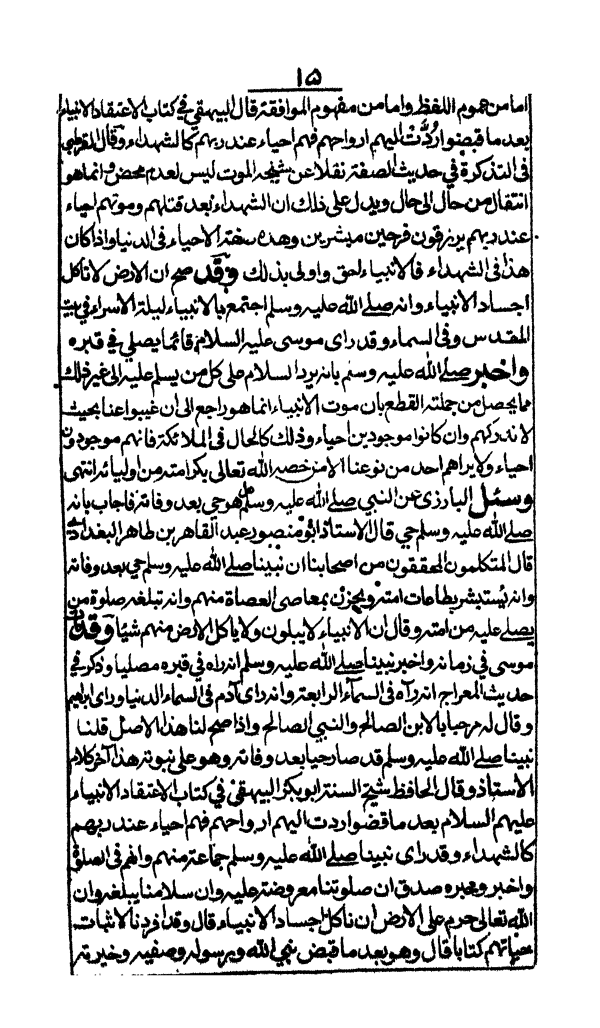 ۱۵
اما من عموم اللفظ واما من مفهوم الموافقة قال البيهقي في كتاب الاعتقاد الانبياء
بعد ما قبضوا ردت اليهم ارواحهم فهم احياء عند ربهم كالشهداء وقال القرطبي
فى التذكرة في حديث الصعقة نقلا عن شيخه الموت ليس لعدم محض وانما هو
انتقال من حال الى حال ويدل على ذلك ان الشهداء بعد قتلهم وموتهم احياء
عند ربهم يرزقون فرحين مبشرين وهذه صفة الاحياء فى الدنيا واذا كان
هذا فى الشهداء فالانبياء احق واولى بذلك وقد صح ان الارض لا تاكل
اجساد الانبياء وانه صلى الله عليه وسلم اجتمع بالانبياء ليلة الاسراء في بيت
المقدس وفى السماء وقد راى موسى عليه السلام قائما يصلي في قبره
واخبر صلى الله عليه وسلم بانه يرد السلام على كل من يسلم عليه الى غير ذلك
مما يحصل من جملته القطع بان موت الانبياء انما هو راجع الى ان غيبوا عنا بحيث
لا ندركهم وان كانوا موجودين احياء وذلك كالحال فى الملائكة فانهم موجودون
احياء ولا يراهم احد من نوعنا الا من خصه الله تعالى بكرامته من اوليائه انتهى
وسئل البارزى عن النبي صلى الله عليه وسلم هل هو حي بعد وفاته فاجاب بانه
صلى الله عليه وسلم حي قال الاستاذ ابو منصور عبد القاهر بن طاهر البغدادى
قال المتكلمون المحققون من اصحابنا ان نبينا صلى الله عليه وسلم حي بعد وفاته
وانه يستبشر بطاعات امته ويحزن بمعاصى العصاة منهم وانه تبلغه صلوة من
يصلى عليه من امته وقال ان الانبياء لا يبلون ولا ياكل الارض منهم شيئا وقد مات
موسى في زمانه واخبر نبينا صلى الله عليه وسلم انه راه في قبره مصليا وذكر في
حديث المعراج انه رآه فى السمآء الرابعة وانه راى آدم فى السماء الدنيا وراى ابراهيم
وقال له مرحبا بالابن الصالح والنبي الصالح واذا صح لنا هذا الاصل قلنا
نبينا صلى الله عليه وسلم قد صار حيا بعد وفاته وهو على نبوته هذا آخر كلام
الاستاذ وقال الحافظ شيخ السنة ابو بكر البيهقى في كتاب الاعتقاد الانبياء
عليهم السلام بعد ما قضوا ردت اليهم ارواحهم فهم احياء عند ربهم
كالشهداء وقد راى نبينا صلى الله عليه وسلم جماعة منهم وامهم فى الصلوة
واخبر وخبره صدق ان صلوتنا معروضة عليه وان سلامنا يبلغه وان
الله تعالى حرم على الارض ان تاكل اجساد الانبياء قال وقد افردنا لاثبات
حياتهم كتابا قال وهو بعد ما قبض نبي الله ورسوله وصفيه وخيرته